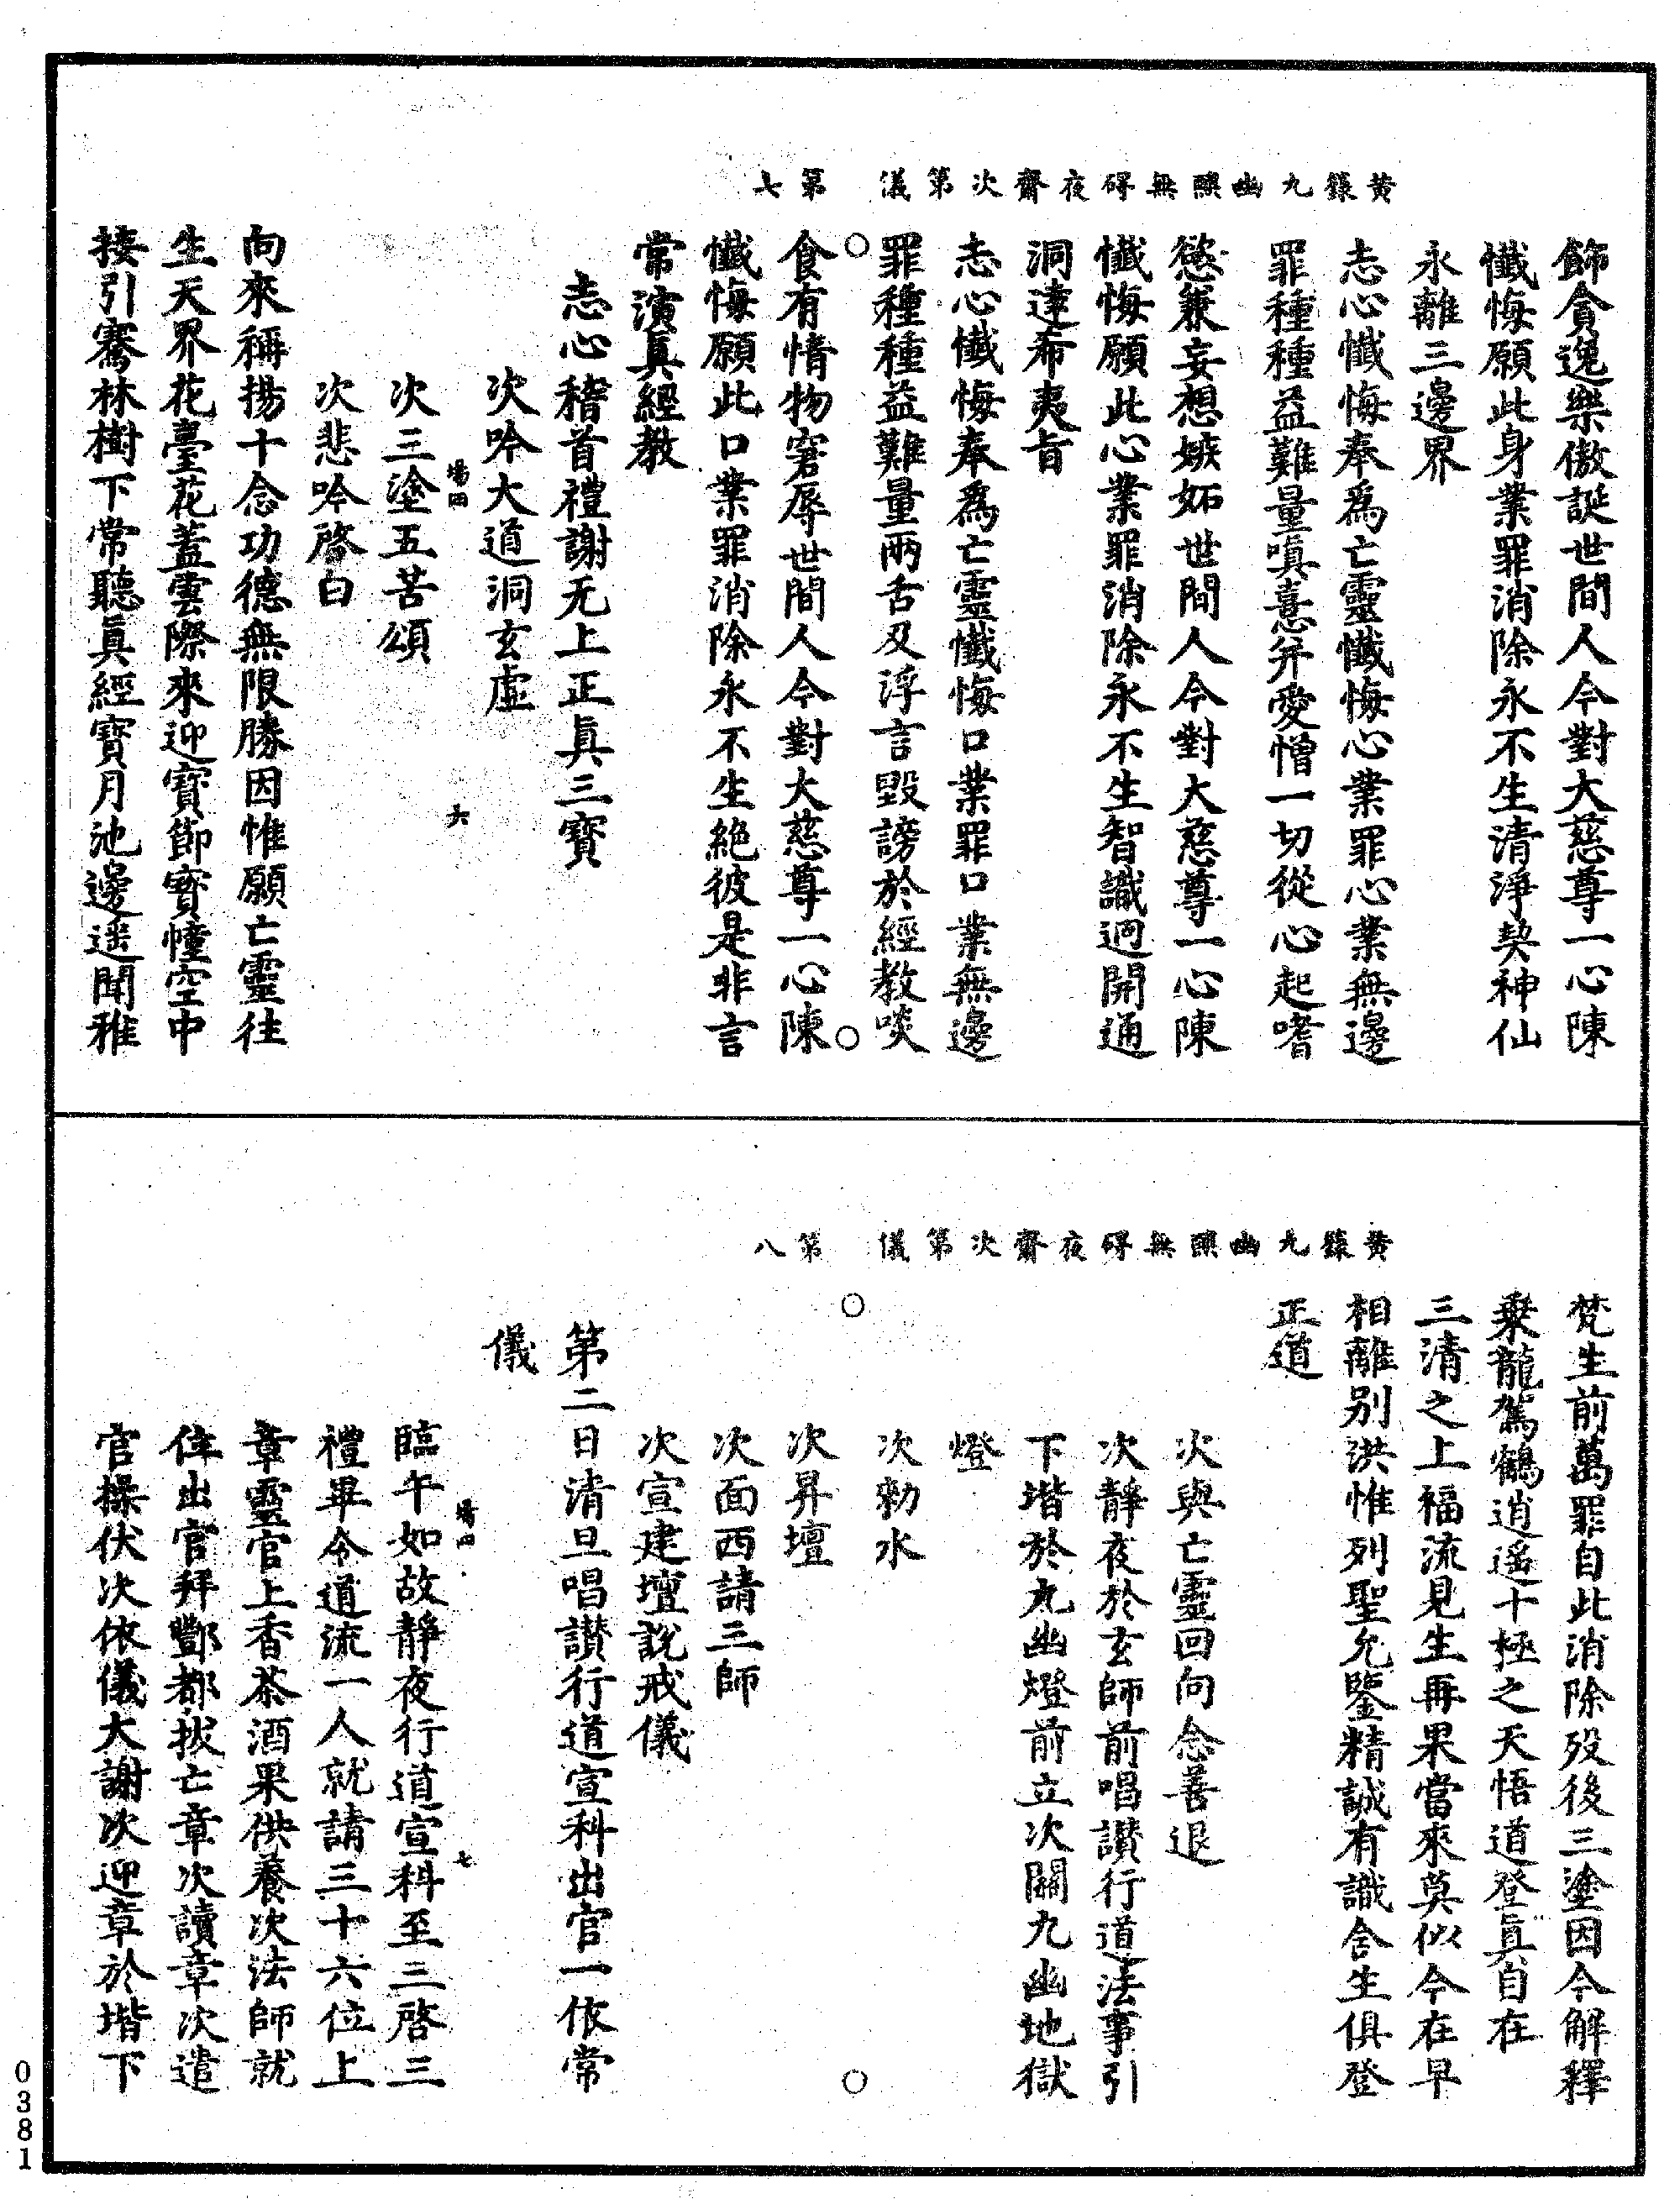 黃籙九幽醮無碍夜齋次第儀　第七
飾貪逸樂傲誕世間人今對大慈尊一心陳
懺悔願此身業罪消除永不生清淨契神仙
永離三邊界
志心懺悔奉爲亡靈懺悔心業罪心業無邊
罪種種益難量嗔恚并愛憎一切從心起嗜
慾兼妄想嫉妬世間人今對大慈尊一心陳
懺悔願此心業罪消除永不生智識迥開通
洞達希夷旨
志心懺悔奉爲亡靈懺悔口業罪口業無邊
罪種種益難量兩舌及浮言毀謗於經教啖
食有情物窘辱世間人今對大慈尊一心陳
懺悔願此口業罪消除永不生絶彼是非言
常演眞經教
志心稽首禮謝无上正眞三寶
次吟大道洞玄虛
場四　六
次三塗五苦頌
次悲吟啓白
向來稱揚十念功德無限勝因惟願亡靈往
生天界花臺花蓋雲際來迎寶節寶幢空中
接引騫林樹下常聽眞經寶月池邊遥聞雅
黃籙九幽醮無碍夜齋次第儀　第八
梵生前萬罪自此消除殁後三塗因今解釋
乗龍駕鶴逍遥十極之天悟道登眞自在
三清之上福流見生再果當來莫似今在早
相離别洪惟列聖允鑒精誠有識含生俱登
正道
次與亡靈回向念善退
次靜夜於玄師前唱讃行道法事引
下堦於九幽燈前立次關九幽地獄
燈
次勑水
次昇壇
次面西請三師
次宣建壇說戒儀
第二日清旦唱讃行道宣科出官一依常
儀
場四　七
臨午如故靜夜行道宣科至三啓三
禮畢令道流一人就請三十六位上
章靈官上香茶酒果供養次法師就
位出官拜酆都拔亡章次讀章次遣
官操伏次依儀大謝次迎章於堦下
0381